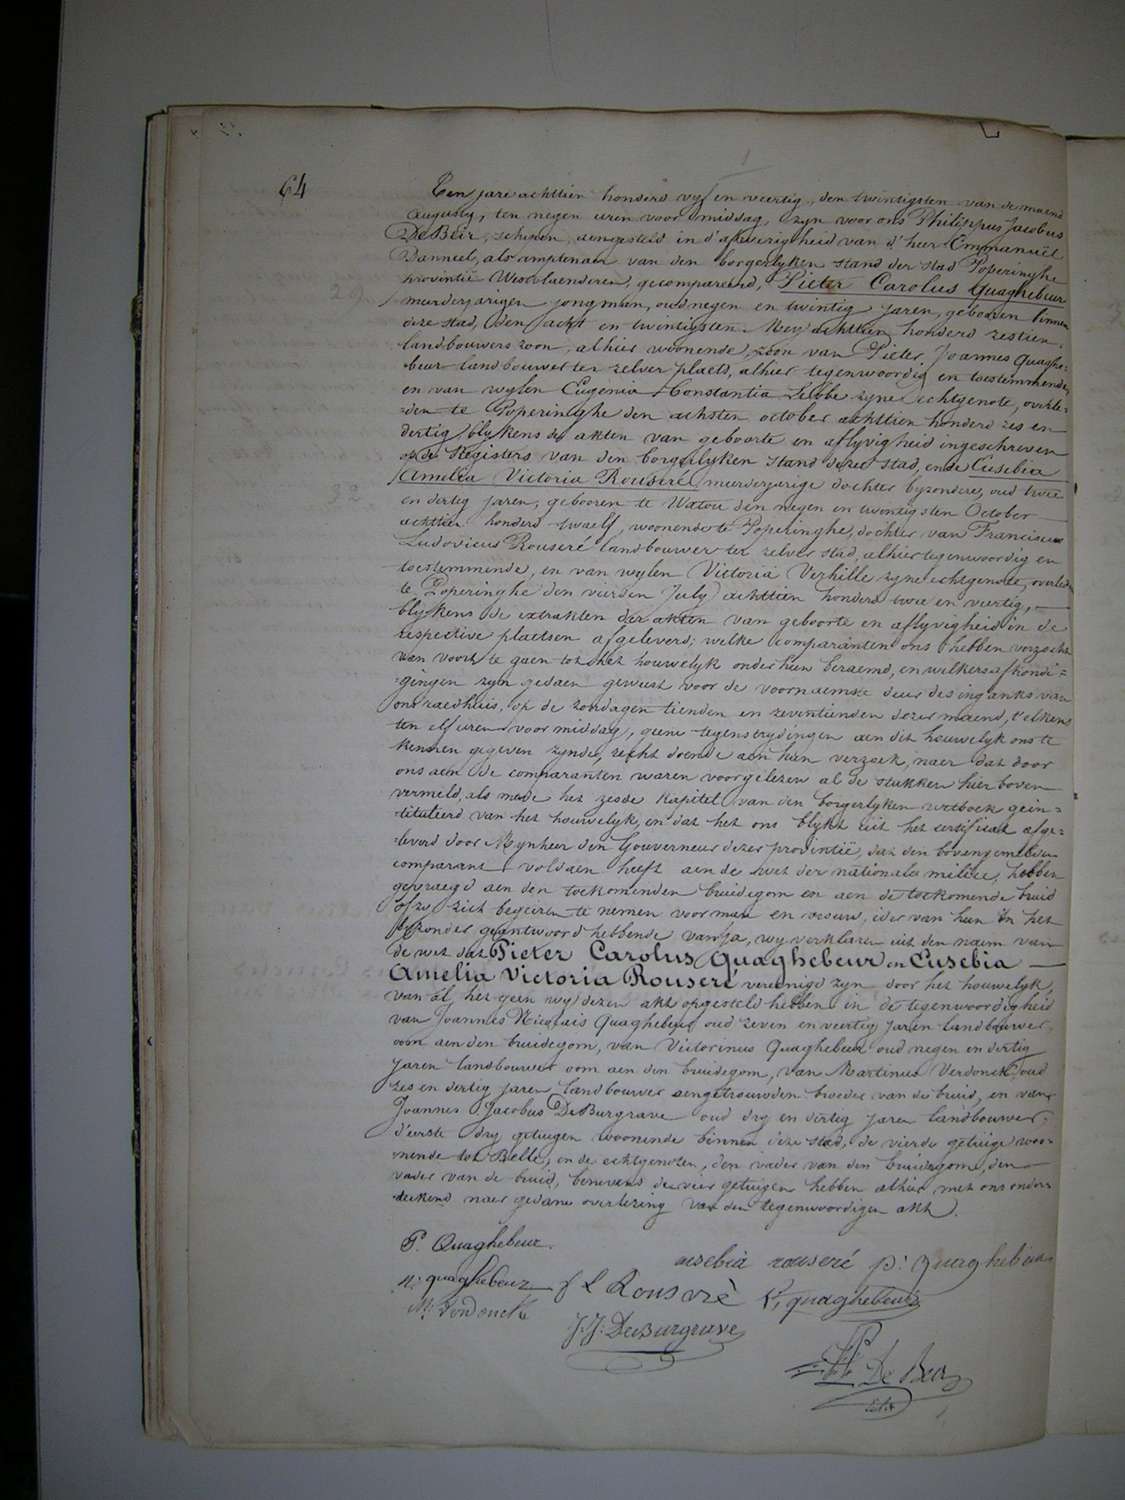 64
Ten jare achttien honderd vyf en veertig, den twintigsten van de maend
augusty, ten negen uren voor middag, zyn voor ons Philippus Jacobus
De Beir, schepen, aengesteld in d'afwezigheid van d'heer Emmanuël
Danneel, als amptenaer van den borgerlyken stand der stad Poperinghe
provintie Westvlaenderen, gecompareerd, Pieter Carolus Quaghebeur
meerderjarigen jongman, oud negen en twintig jaren, gebooren binnen
deze stad, den acht en twintigsten Mey achttien honderd zestien,
landbouwers zoon, alhier woonende, zoon van Pieter Joannes Quaghe-
beur landbouwer ter zelver plaets, alhier tegenwoordig en toestemmende,
en van wylen Eugenia Constantia Lebbe zyne echtgenote, overle-
den te Poperinghe den achsten october achttien honderd zes en
dertig, blykens de akten van geboorte en aflyvigheid ingeschreven
op de Registers van den borgerlyken stand dezer stad, ende Eusebia
Amelia Victoria Rouseré, meerderjarige dochter byzondere, oud twee
en dertig jaren, gebooren te Watou den negen en twintigsten October
achttien honderd twaelf, woonende te Poperinghe, dochter van Franciscus
Ludovicus Rouseré landbouwer ter zelver stad, alhier tegenwoordig en
toestemmende, en van wylen Victoria Verhille zyne echtgenote, overleden
te Poperinghe den vierden July achttien honderd twee en veertig,
blykens de extrakten der akten van geboorte en aflyvigheid in de
respective plaetsen afgeleverd; welke comparanten ons hebben verzocht
van voort te gaen tot het houwelyk onder hun beraemd, en welkers afkondi-
gingen zyn gedaen geweest voor de voornaemste deur des ingankx van
ons raedhuis, op de zondagen tienden en zeventienden dezer maend, t'elkens
ten elf uren voor middag, geene tegenstrydingen aen dit houwelyk ons te
kennen gegeven zynde, recht doende aen hun verzoek, naer dat door
ons aen de comparanten waren voorgelezen al de stukken hier boven
vermeld, als mede het zesde kapitel van den borgerlyken wetboek gein-
tituleerd van het houwelyk, en dat het ons blykt uit het certificat afge-
leverd door Mynheer den Gouverneur dezer provintie, dat den bovengemelden
comparant voldaen heeft aen de wet der nationale milicie, hebben
gevraegd aen den toekomenden bruidegom en aen de toekomende bruid
of zy zich begeiren te nemen voor man en vrouw, ider van hun in het
byzonder geantwoord hebbende van ja, wy verklaren uit den naem van
de wet dat Pieter Carolus Quaghebeur en Eusebia
Amelia Victoria Rouseré vereenigd zyn door het houwelyk,
van al het geen wy dezen akt opgesteld hebben in de tegenwoordigheid
van Joannes Nicolais Quaghebeur oud zeven en veertig jaren landbouwer,
oom aen den bruidegom, van Victorinus Quaghebeur oud negen en dertig
jaren landbouwer oom aen den bruidegom, van Martinus Verdonck, oud
zes en dertig jaren landbouwer aengetrouwden broeder van de bruid, en van
Joannes Jacobus DeBurgrave oud dry en dertig jaren landbouwer,
d'eerste dry getuigen woonende binnen deze stad, de vierde getuige woo-
nende tot Belle, en de echtgenoten, den vader van den bruidegom, den
vader van de bruid, benevens de vier getuigen hebben alhier met ons onder-
teekend naer gedane overlezing van den tegenwoordigen akt.
P. Quaghebeur.
eusebia rouseré p: j quaghebeur
N: quaghebeur f L Rouseré V, quaghebeur
M: Verdonck
J: J: DeBurgrave
Ph De Beir